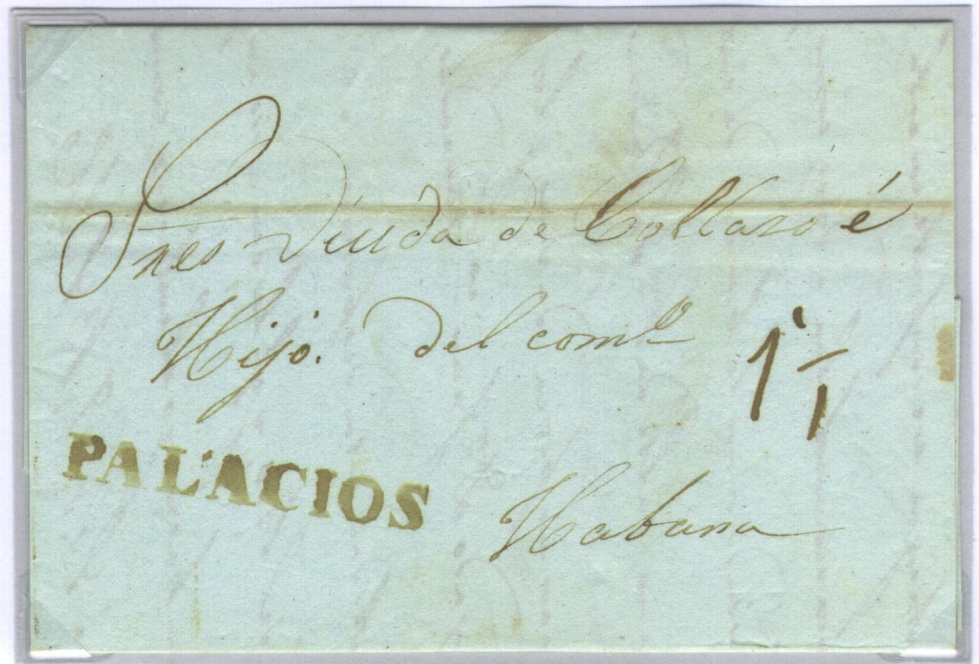 Sres Viuda de Collazo é
Hijo. del comº
1 1
PALACIOS
Habana